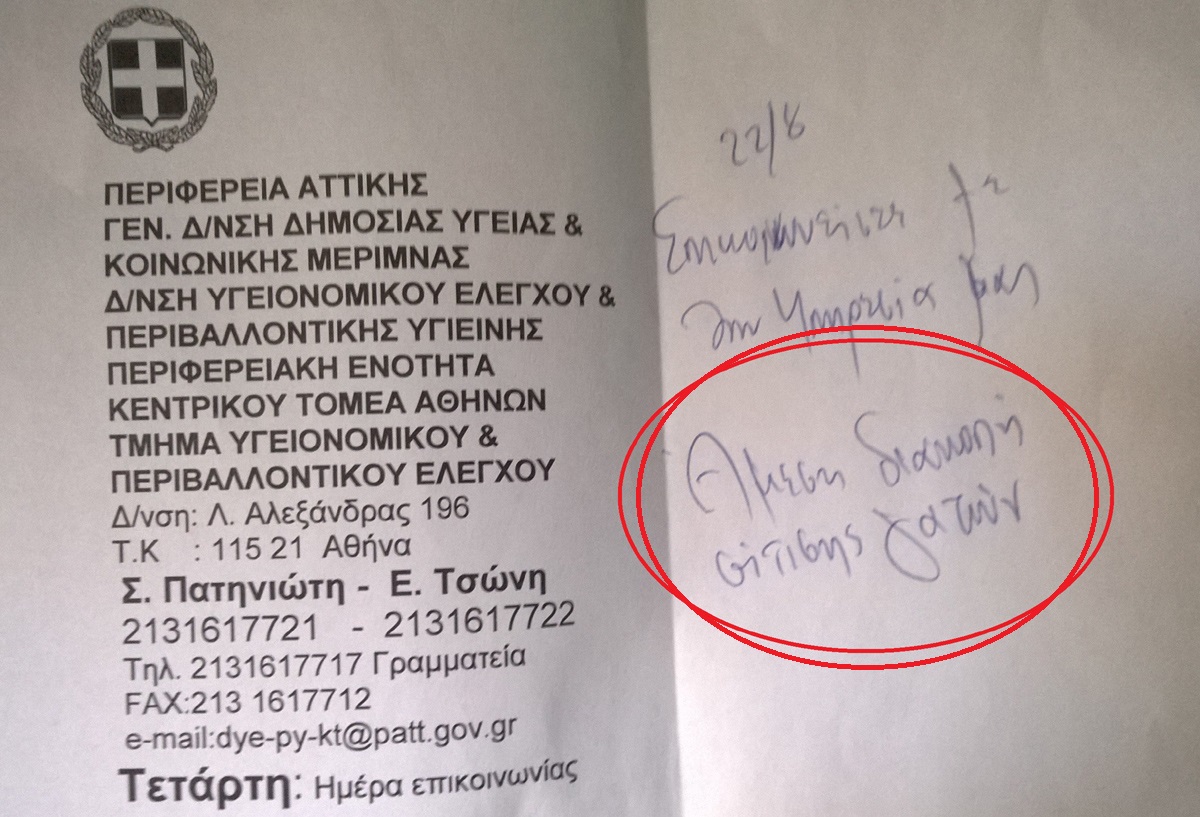 ΠΕΡΙΦΕΡΕΙΑ ΑΤΤΙΚΗΣ
ΓΕΝ. Δ/ΝΣΗ ΔΗΜΟΣΙΑΣ ΥΓΕΙΑΣ &
ΚΟΙΝΩΝΙΚΗΣ ΜΕΡΙΜΝΑΣ
Δ/ΝΣΗ ΥΓΕΙΟΝΟΜΙΚΟΥ ΕΛΕΓΧΟΥ &
ΠΕΡΙΒΑΛΛΟΝΤΙΚΗΣ ΥΓΙΕΙΝΗΣ
ΠΕΡΙΦΕΡΕΙΑΚΗ ΕΝΟΤΗΤΑ
ΚΕΝΤΡΙΚΟΥ ΤΟΜΕΑ ΑΘΗΝΩΝ
ΤΜΗΜΑ ΥΓΕΙΟΝΟΜΙΚΟΥ &
ΠΕΡΙΒΑΛΛΟΝΤΙΚΟΥ ΕΛΕΓΧΟΥ
Δ/νση: Λ. Αλεξάνδρας 196
Τ.Κ : 115 21 Αθήνα
Σ. Πατηνιώτη - Ε. Τσώνη
2131617721 - 2131617722
Τηλ. 2131617717 Γραμματεία
FAX:213 1617712
e-mail:dye-py-kt@patt.gov.gr
Τετάρτη: Ημέρα επικοινωνίας
22/8
με
την Υπηρεσία μας
Άμεση διακοπή
σίτισης γατών